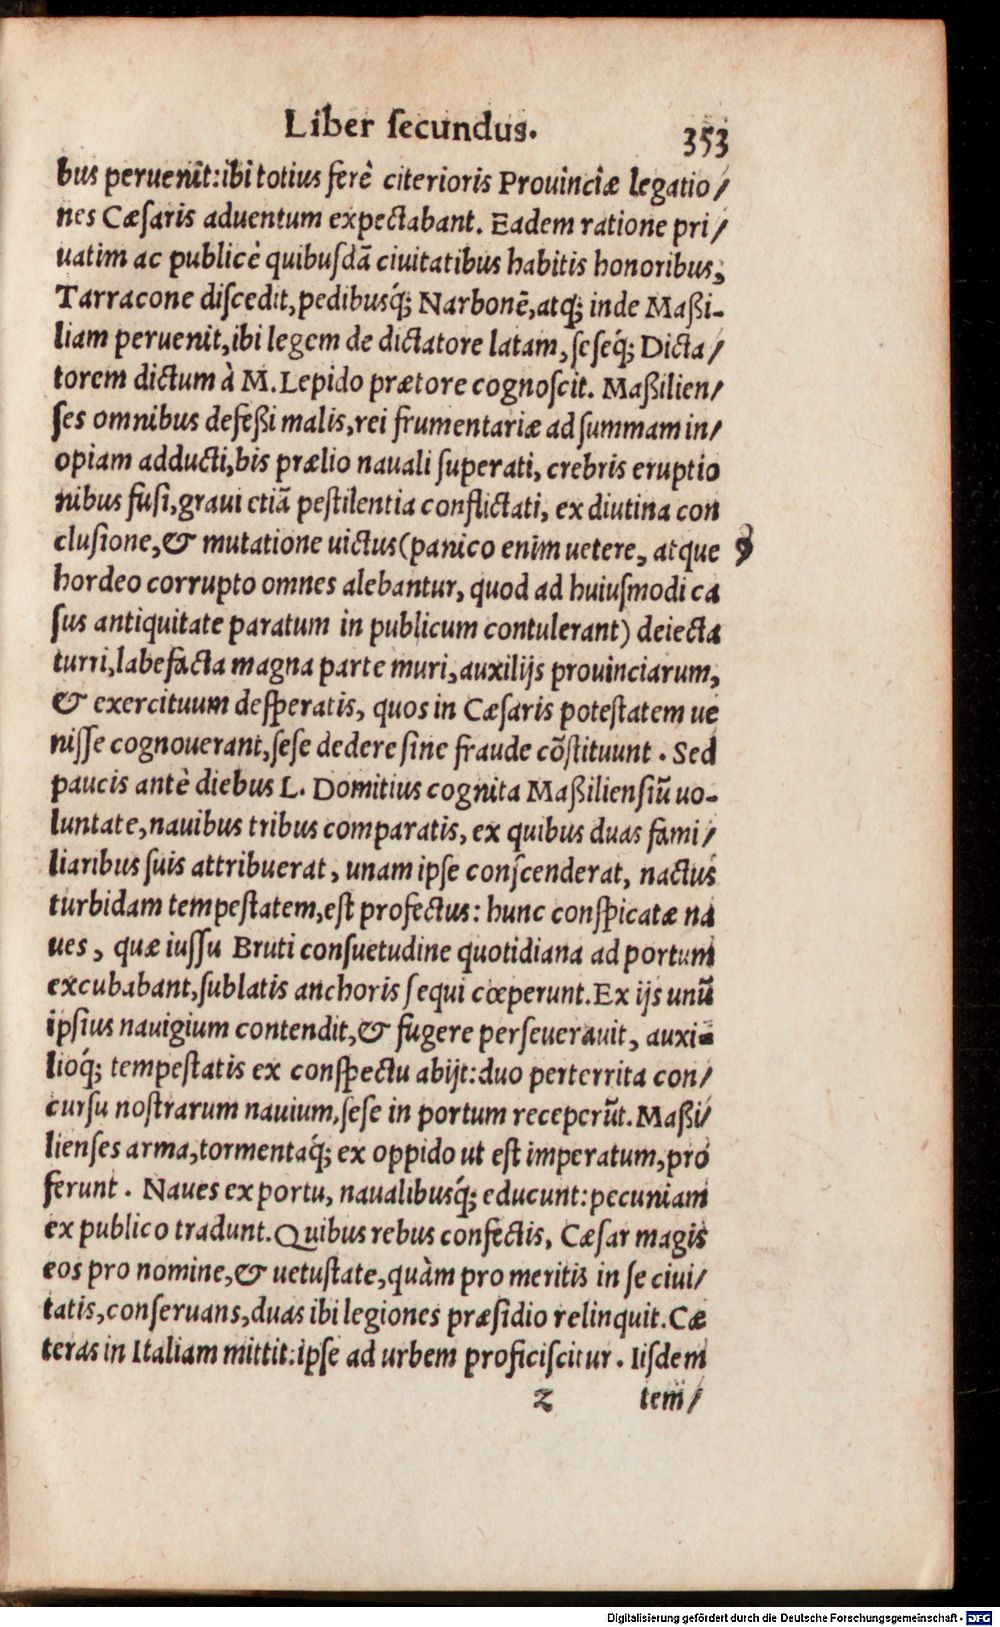 Liber ſecundus. 353
bus peruenit: ibi totius ferè citerioris Prouinciæ legatio/
nes Cæſaris aduentum expectabant. Eadem ratione pri/
uatim ac publicè quibuſdā ciuitatibus habitis honoribus,
Tarracone diſcedit, pedibusq́; Narbonē, atq; inde Maßi-
liam peruenit, ibi legem de dictatore latam, ſeſeq́; Dicta/
torem dictum à M. Lepido prætore cognoſcit. Maßilien/
ſes omnibus defeßi malis, rei frumentariæ ad ſummam in/
opiam adducti, bis prælio nauali ſuperati, crebris eruptio
nibus fuſi, graui etiā peſtilentia conflictati, ex diutina con
cluſione, & mutatione uictus (panico enim uetere, atque
hordeo corrupto omnes alebantur, quod ad huiuſmodi ca
ſus antiquitate paratum in publicum contulerant) deiecta
turri, labefacta magna parte muri, auxilijs prouinciarum,
& exercituum deſperatis, quos in Cæſaris poteſtatem ue
niſſe cognouerant, ſeſe dedere ſine fraude cōſtituunt. Sed
paucis antè diebus L. Domitius cognita Maßilienſiū uo-
luntate, nauibus tribus comparatis, ex quibus duas fami/
liaribus ſuis attribuerat, unam ipſe conſcenderat, nactus
turbidam tempeſtatem, eſt profectus: hunc conſpicatæ na
ues, quæ iuſſu Bruti conſuetudine quotidiana ad portum
excubabant, ſublatis anchoris ſequi cœperunt. Ex ijs unū
ipſius nauigium contendit, & fugere perſeuerauit, auxi-
lioq́; tempeſtatis ex conſpectu abijt: duo perterrita con/
curſu noſtrarum nauium, ſeſe in portum receperūt. Maßi/
lienſes arma, tormentaq́; ex oppido ut eſt imperatum, pro
ferunt. Naues ex portu, naualibusq́; educunt: pecuniam
ex publico tradunt. Quibus rebus confectis, Cæſar magis
eos pro nomine, & uetuſtate, quàm pro meritis in ſe ciui/
tatis, conſeruans, duas ibi legiones præſidio relinquit. Cæ
teras in Italiam mittit: ipſe ad urbem proficiſcitur. Iiſdem
z tem/
Digitalisierung gefördert durch die Deutsche Forschungsgemeinschaft - DFG